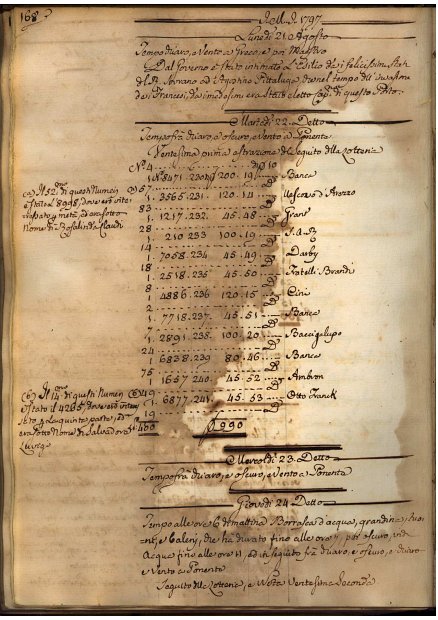 168
Nell A. 1797.
Lunedi 21 Agosto
Tempo chiaro, e vento a Greco, e poi Maestro
Dal Governo è stato intimato l'Esilio dai felicissimi Stati
del P. Sovrano ad Agostino Pittaluga, che nel tempo dell'invasione
dei Francesi, dai medesimi era stato eletto Cap. di questo Porto.
Martedi 22. Detto
Tempo frà chiaro e oscuro, e vento a Ponente
Ventesima prima estrazione di seguito della Lotteria
N. 4
1. 8471.230 200.19 Banca
57
1. 3565.231. 120.14 Vescovo d'Arezzo
83
1. 1217.232. 45.48 Grant
28
1. 210 233 100.19
14
1. 7058.234 45.49 Darby
18
1. 2518.235. 45.50 Fratelli Brandi
8
1. 4886.236 120.15 Cini
2
1. 7718.237. 45.51 Banca
7
1. 2891.235. 100.20 Baccigalupo
24
1. 6838.239 80.46 Banca
75
1. 1657 240. 45.52 Ambron
49
1. 6877.241. 45.53 Otto Franck
19
400 990
(a) Il 52. di questi Numeri
è stato l'8998, dove era
sotto
Nome di Rosalinda Claudi
Il 14. di questi Numeri
è stato il 4265, dove era
la quinta parte,
sotto Nome di Salvadore
Mercoldi 23. Detto
Tempo frà chiaro, e oscuro, e vento a Ponente
Giovedi 24 Detto
Tempo alle ore 6 di mattina Borrasca d'acqua, grandine, tuo-
ni, e baleni, che hà durato fino alle ore 7, poi oscuro, ed
Acqua fino alle ore 11, ed in seguito frà chiaro, e oscuro, e chiaro
e vento a Ponente
Seguito della Lotteria, e Nota Ventesima Seconda